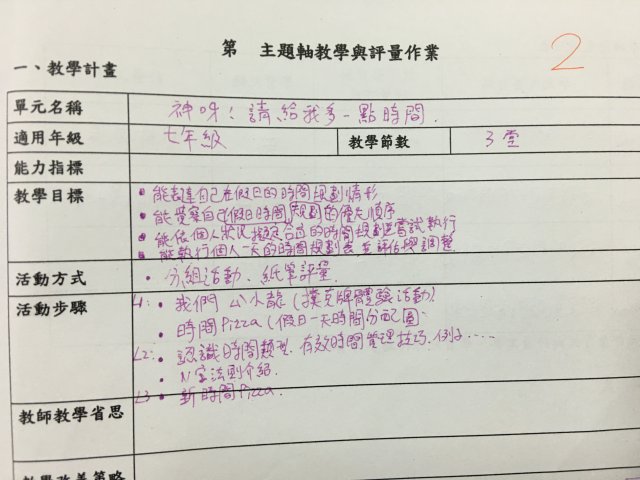 第 主題軸教學與評量作業
2
一、教學計畫
單元名稱 神呀!請給我多一點時間.
適用年級 七年級 教學節數 3堂
能力指標
教學目標 • 能表達自己在假日的時間規劃情形
• 能覺察自己假日時間規劃的優先順序
• 能依個人狀況擬定合適的時間規劃並嘗試執行
• 能執行個人一天的時間規劃表並評估與調整
活動方式 • 分組活動、紙筆評量
活動步驟 L1: • 我們 小龍(撲克牌體驗活動)
• 時間Pizza(假日一天時間分配圖)
L2: • 認識時間類型.有效時間管理技巧.例子……
• 字法則介紹.
L3 • 新時間Pizza.
教師教學省思
教學改善策略